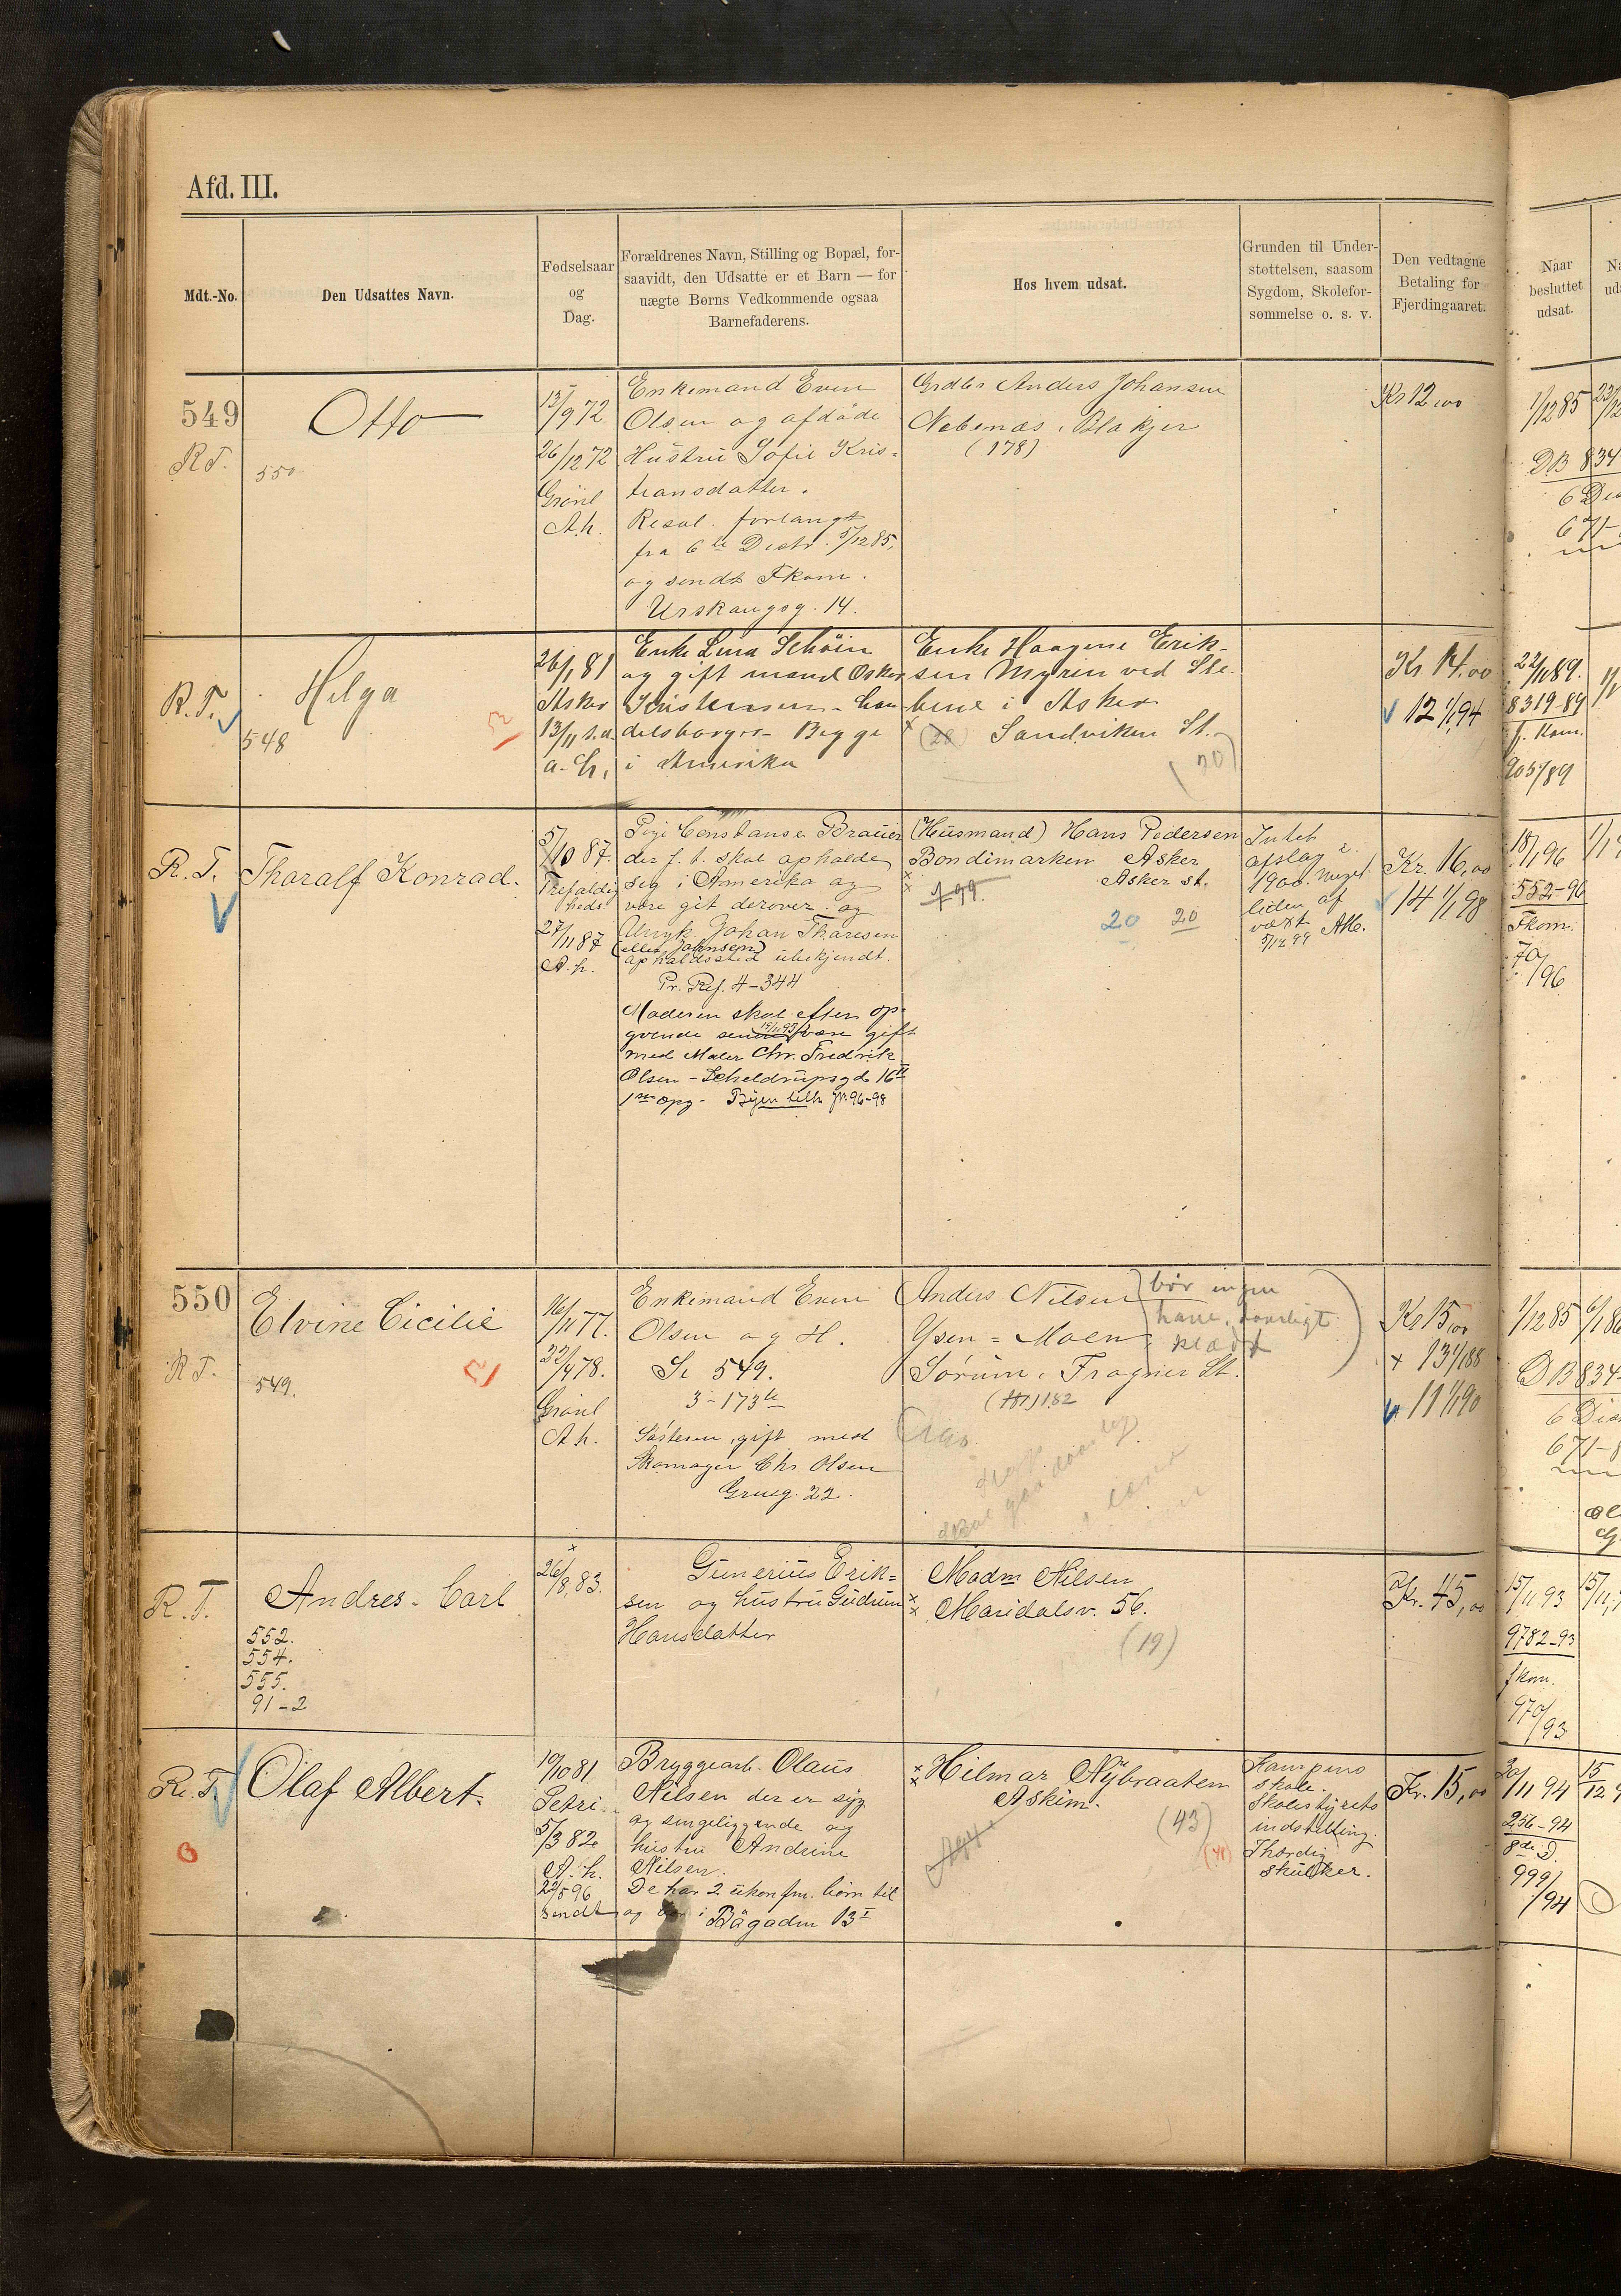 Afd. III.
Mdt.-No.
Den Udsattes Navn.
Fødselsaar
og
Dag.
Forældrenes Navn, Stilling og Bopæl, for-
saavidt, den Udsatte er et Barn — for
uægte Børns Vedkommende ogsaa
Barnefaderens.
Hos hvem udsat.
Grunden til Under-
støttelsen, saasom
Sygdom, Skolefor-
sømmelse o. s. v.
Den vedtagne
Betaling for
Fjerdingaaret.
Naar
besluttet
udsat.
549
R.T.
Otto
550
13/9 72
26/12 72
Grönl
A.h.
Enkemand Even
Olsen og afdöde
Hustru Sofie Kris-
tiansdatter.
Resol. forlangt
fra 6te Distr. 5/12 85,
og sendt Fkom.
Urskougsg. 14.
Grdbr Anders Johansen
Nebenæs, Blakjer
(178)
Kr 12,00
1/12 85
DB 834
R.T.
Helga
548
26/1 81
Asker
13/11 s.a.
a. h.
Enke Lina Schöien
og gift mand Oskar
Kristensen - han
delsborger - Begge
i Amerika
Enke Haagene Erik-
sen Myrin ved Sle-
bene i Asker
(28) Sandviken St.
(20)
Kr. 14,00
12 1/1 94
22/11 89.
8319-89
f. Kom.
903/89
R.T.
Tharalf Konrad.
5/10 87.
Trefaldig
heds
27/11 87
A.h.
Pige Constanse Brauer
der f. t. skal opholde
sig i Amerika og
være git derover og
Ungk. Johan Tharesen
(eller Johnsen)
opholdssted übekjendt.
Pr. Ref. 4-344
Moderen skal efter op-
givende senere være gift
med Maler Chr. Fredrik
Olsen - Scheldrupsgd 16 II
1ste opg -
(Husmand) Hans Pedersen
Bondimarken Asker
Asker st.
199.
20 20
Intet
afslag i
1900. meget
liden af
væxt
5/12 99 AH.
Kr. 16,00
14 1/1 98
18/1 96
552-96
Fkom.
70/96
550
R.T.
Elvine Cicilie
549.
16/11 77.
22/4 78.
Grönl
A.h.
Enkemand Even
Olsen og H.
Se 549.
3-173 b
Søsteren gift med
Skomager Chr. Olsen
Grueg. 22.
Anders Nilsen
Ysen = Moen
Sørum, Frogner St.
(181) 182
bör ingen
have, daarligt
klædt
Kr 15,00
+ 13 1/1 88
11 1/1 90
1/12 85
DB 834-
R.T.
Andres. Carl
552.
554.
555.
91-2
26/8 83.
Gunerius Erik=
sen og hustru Gudrun
Hansdatter
Madm Nilsen
Maridalsv. 56.
(19)
Kr. 45,00
15/11 93
9782-93
fkom.
970/93
R.T.
Olaf Albert.
19/10 81
Petri
5/3 82
A.h.
22/5 96
sendt
Bryggearb. Olaus
Nilsen der er syg
og sengeliggende og
hustru Andrine
Nilsen.
De har 2 ukonfm. börn til
og bor i Bügaden 13 I
Hilmar Nybraaten
Askim.
(43)
Kampens
skole.
Skolestyrets
indstilling.
Thordig
skulker.
Kr. 15,00
20/11 94
256-94
8de D.
999/94